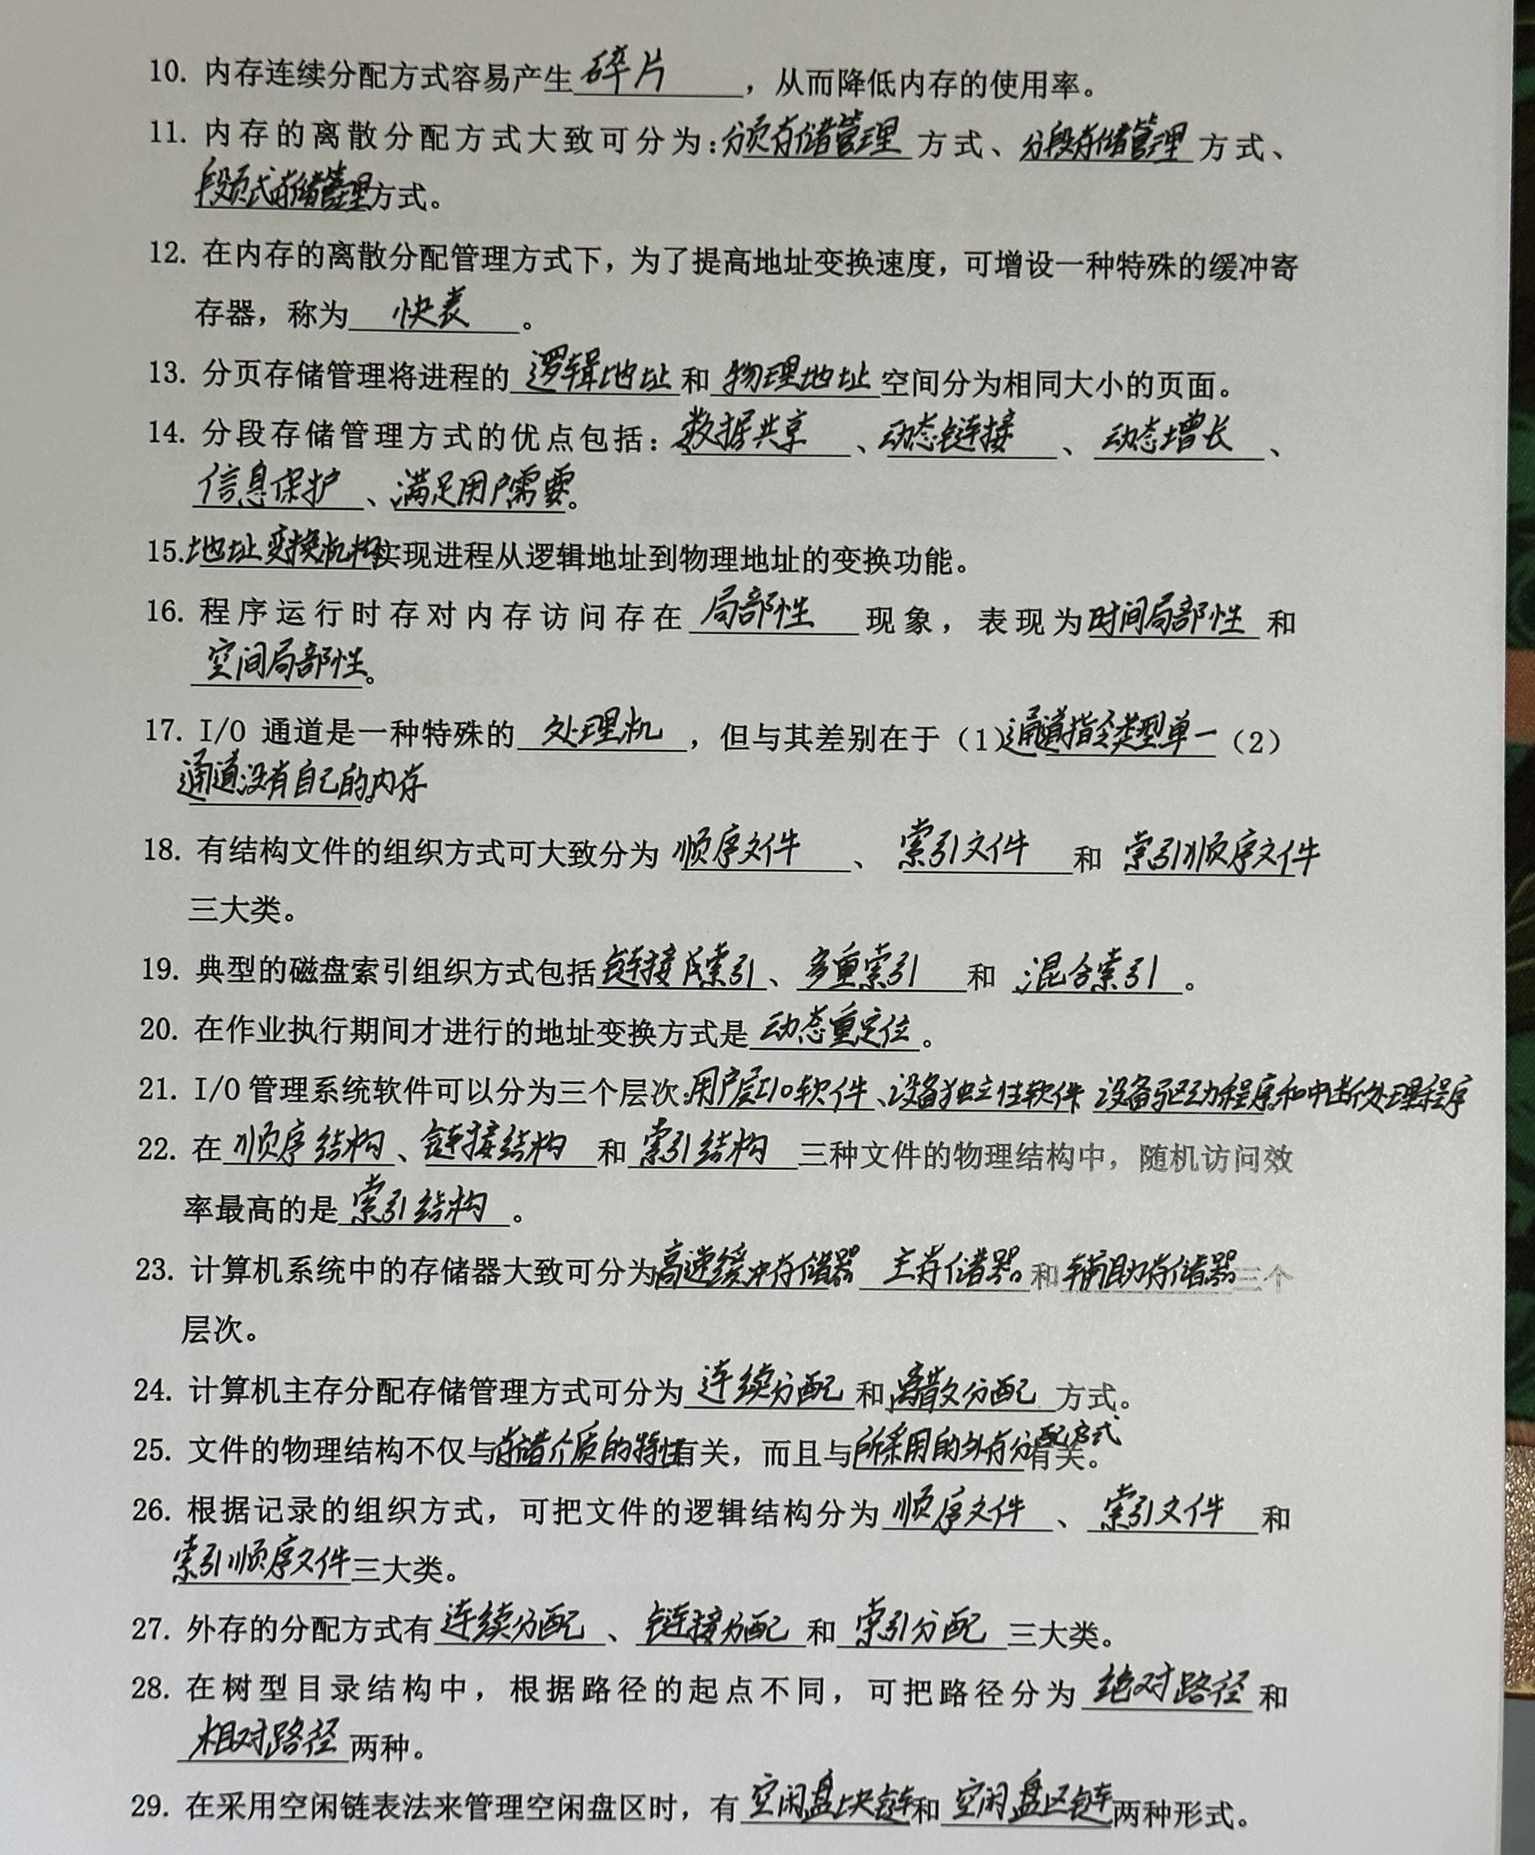 10. 内存连续分配方式容易产生碎片，从而降低内存的使用率。
11. 内存的离散分配方式大致可分为:分页存储管理方式、分段存储管理方式、
段页式存储管理方式。
12. 在内存的离散分配管理方式下，为了提高地址变换速度，可增设一种特殊的缓冲寄
存器，称为快表。
13. 分页存储管理将进程的逻辑地址和物理地址空间分为相同大小的页面。
14. 分段存储管理方式的优点包括：数据共享、动态链接、动态增长、
信息保护、满足用户需要。
15.地址变换机构实现进程从逻辑地址到物理地址的变换功能。
16. 程序运行时存对内存访问存在局部性现象，表现为时间局部性和
空间局部性。
17. I/O 通道是一种特殊的处理机，但与其差别在于（1）通道指令类型单一（2）
通道没有自己的内存。
18. 有结构文件的组织方式可大致分为顺序文件、索引文件和索引顺序文件
三大类。
19. 典型的磁盘索引组织方式包括链接式索引、多重索引和混合索引。
20. 在作业执行期间才进行的地址变换方式是动态重定位。
21. I/O 管理系统软件可以分为三个层次:用户层I/O软件、设备独立性软件 设备驱动程序和中断处理程序
22. 在顺序结构、链接结构和索引结构三种文件的物理结构中，随机访问效
率最高的是索引结构。
23. 计算机系统中的存储器大致可分为高速缓冲存储器 主存储器和辅助存储器三个
层次。
24. 计算机主存分配存储管理方式可分为连续分配和离散分配方式。
25. 文件的物理结构不仅与存储介质的特性有关，而且与所采用的外存分配方式有关。
26. 根据记录的组织方式，可把文件的逻辑结构分为顺序文件、索引文件和
索引顺序文件三大类。
27. 外存的分配方式有连续分配、链接分配和索引分配三大类。
28. 在树型目录结构中，根据路径的起点不同，可把路径分为绝对路径和
相对路径两种。
29. 在采用空闲链表法来管理空闲盘区时，有空闲盘块链和空闲盘区链两种形式。